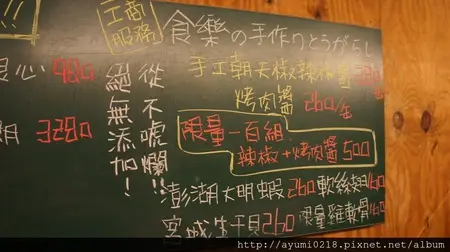 工商
服務
!!
食樂の手作りとうがらし
手工朝天椒辣椒醬 380
烤肉醬 260/缶
限量一百組
辣椒+烤肉醬 500
澎湖大明蝦260 軟絲翅160
宮城生干貝260 限量雞軟骨160
從不唬爛!!
絕無添加!
良心 980
翅 3280
http://ayumi0218.pixnet.net/album